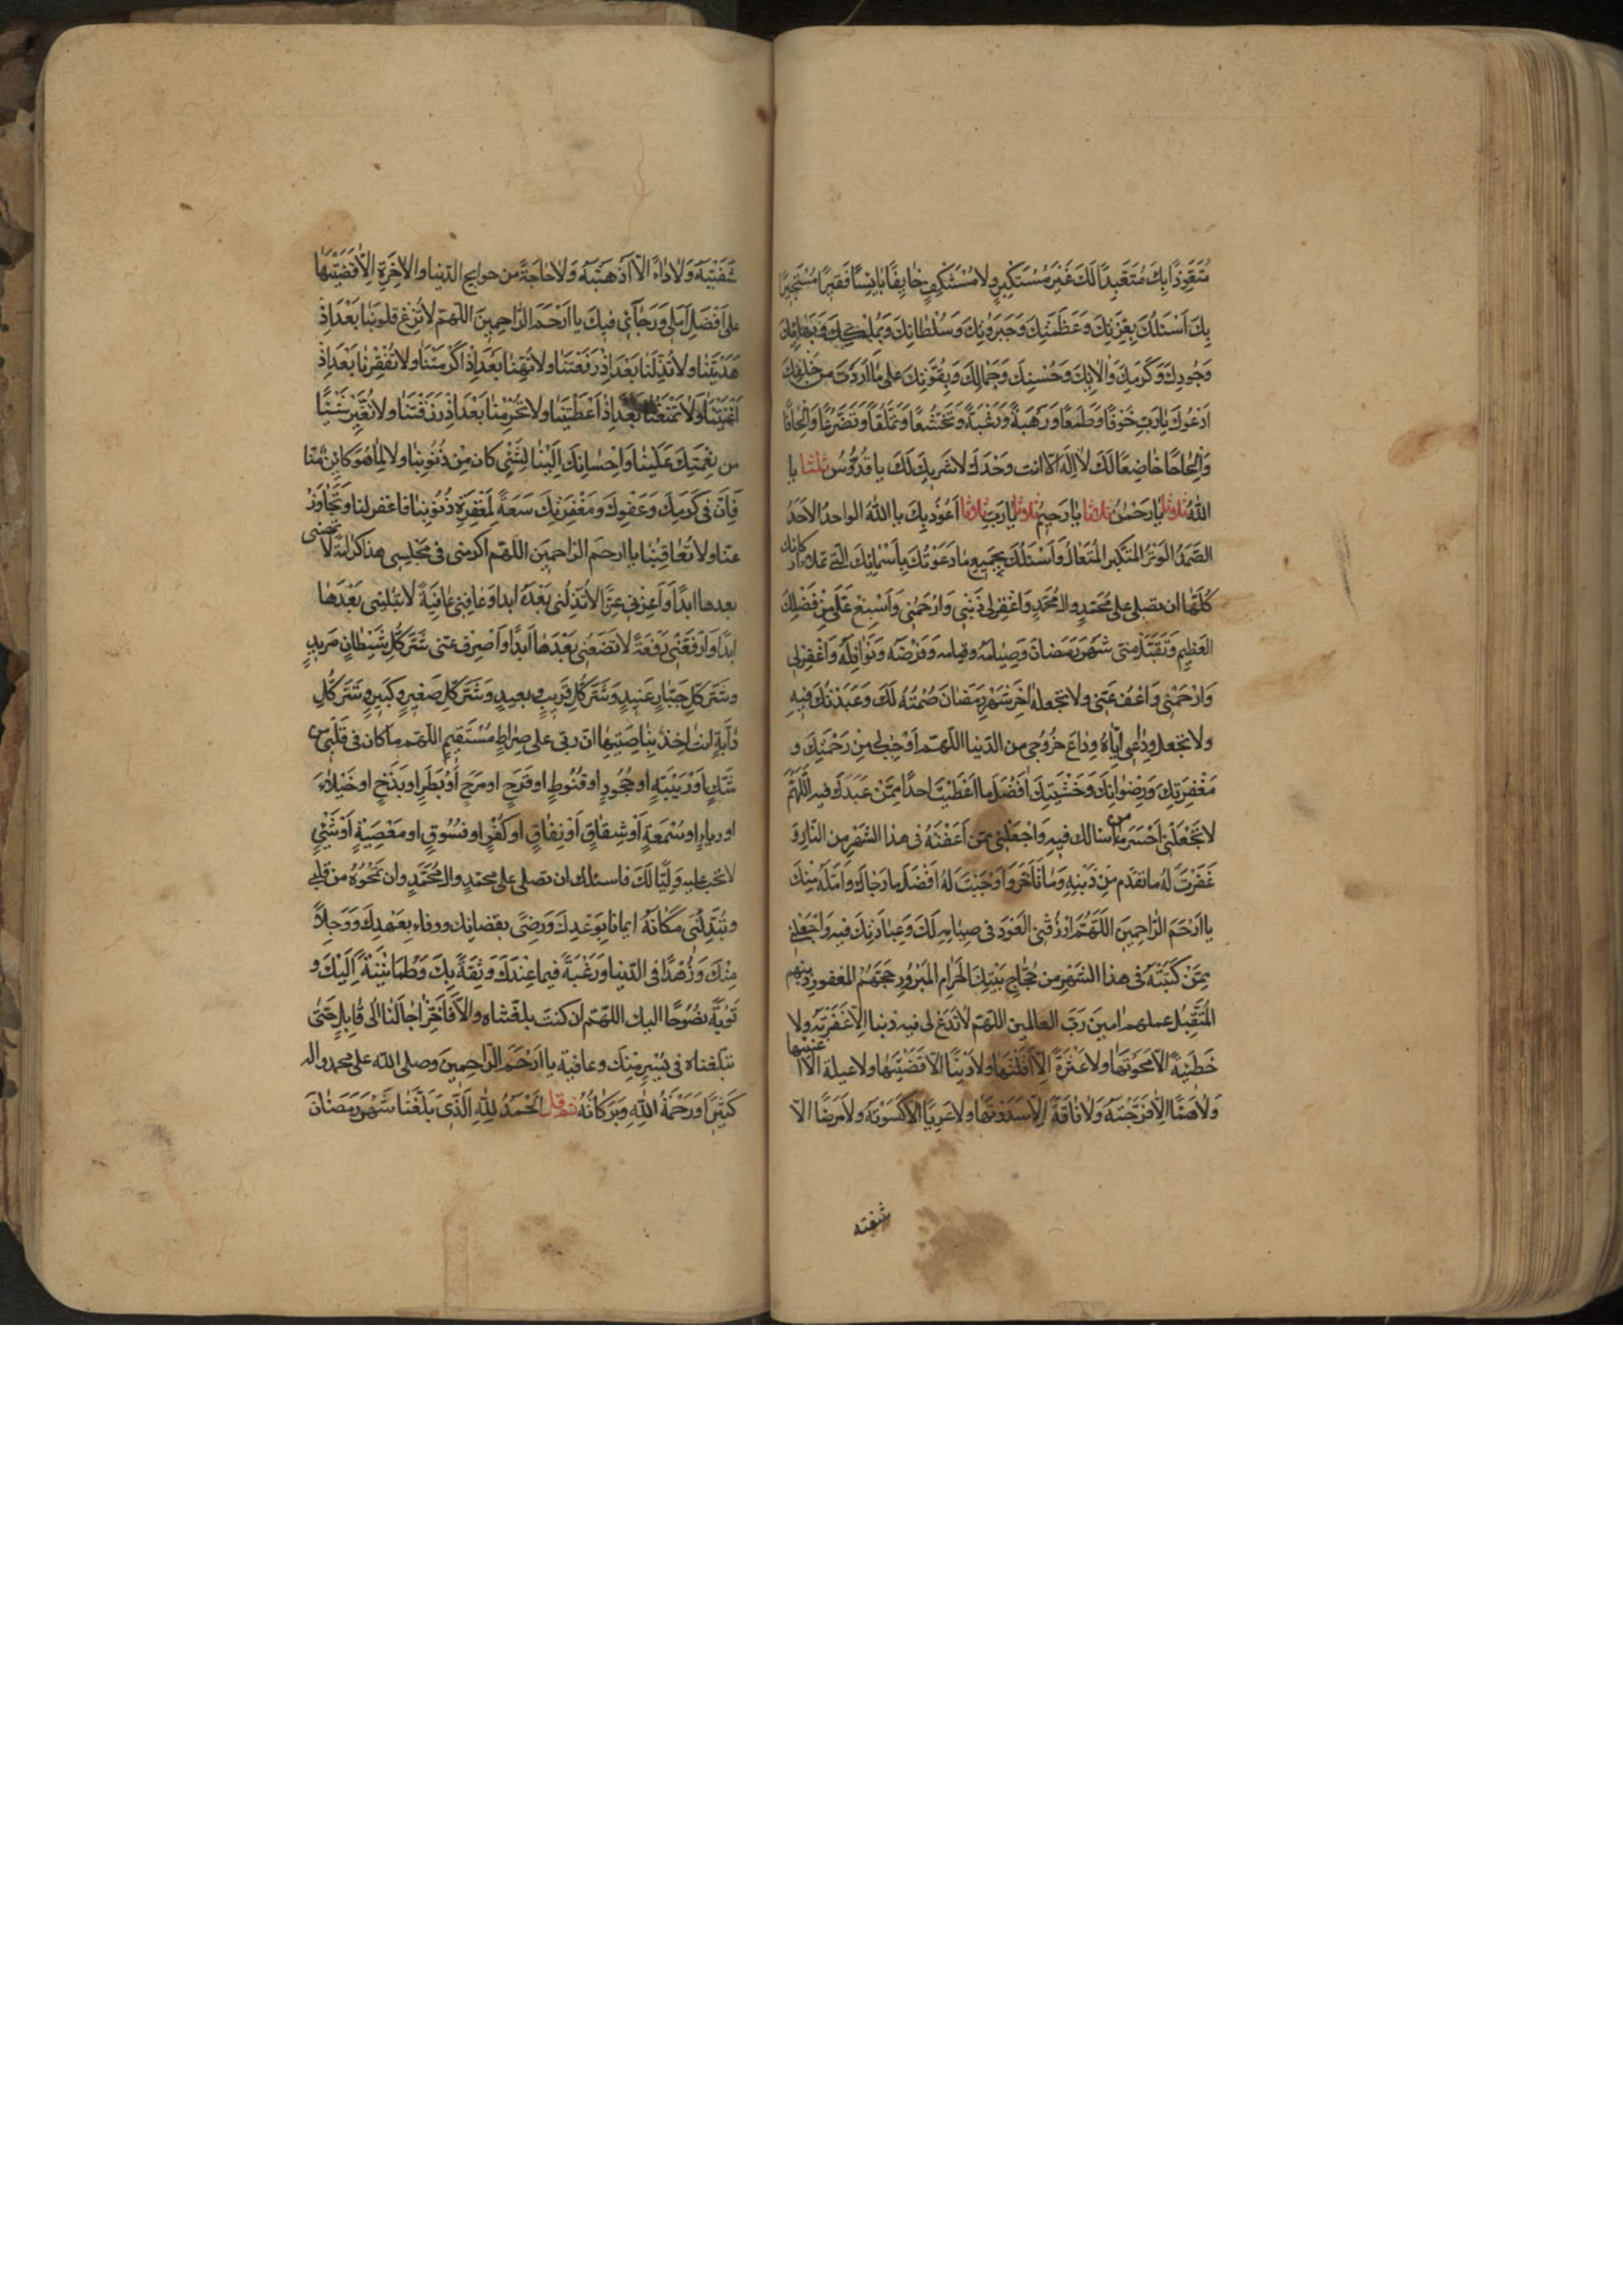 مُتَعَوِّذًا بِكَ مُتَعَبِّدًا لَكَ غَيْرَ مُسْتَكْبِرٍ وَلا مُسْتَنْكِفٍ خٰائِفًا بٰائِسًا فَقيرًا مُسْتَجيرًا
بِكَ اَسْئَلُكَ بِعِزَّتِكَ وَعَظَمَتِكَ وَجَبَرُوتِكَ وَسُلْطٰانِكَ وَبِمُلْكِكَ وَبَهٰائِكَ
وَجُودِكَ وَكَرَمِكَ وَاٰلائِكَ وَحُسْنِكَ وَجَمٰالِكَ وَبِقُوَّتِكَ عَلى مٰا اَرَدْتَ مِنْ خَلْقِكَ
اَدْعُوكَ يٰا رَبِّ خَوْفًا وَطَمَعًا وَرَهْبَةً وَرَغْبَةً وَتَخَشُّعًا وَتَمَلُّقًا وَتَضَرُّعًا وَاِلْحٰافًا
وَاِلْحٰاحًا خٰاضِعًا لَكَ لا اِلٰهَ اِلّا انت وَحْدَكَ لا شَريكَ لَكَ يا قُدُّوسُ ثلثا يا
اللّٰهُ ثلاثا يٰا رَحْمٰنُ ثلاثا يٰا رَحيمُ ثلاثا يٰا رَبِّ ثلاثا اَعُوذُ بِكَ يا اَللّٰهُ الواحدُ الاَحَدُ
الصَّمَدُ الوَتْرُ المُتَكَبِّر المُتَعٰالُ وَاَسْئَلُكَ بِجَميعِ مٰا دَعَوْتُكَ بِه بِاَسْمٰائِكَ الَّتى تملاء اركانك
كُلَّهٰا ان تصلى على مُحَمَّدٍ وال مُحَمَّدٍ وَاغْفِر لى ذَنْبى وَارْحَمْنى وَاَسْبِغْ عَلَىَّ مِنْ فَضْلِكَ
العَظيمِ وَتَقَبَّلْ مِنّى شَهْرَ رَمَضٰانَ وَصِيٰامَهُ وقيامه وَفَرْضَهُ وَنَوٰافِلَهُ وَاغْفِرْ لى
وَارْحَمْنى وَاعْفُ عَنّى ولا تجعله اٰخِرَ شَهْرِ رَمَضٰانَ صُمْتُهُ لَكَ وَعَبَدْتُكَ فيهِ
ولا تجعل وِدٰاعى اِيّٰاهُ وِدٰاعَ خُرُوجى من الدّنيا اللّهم اَوْجِبْ لى مِنْ رَحْمَتِكَ وَ
مَغْفِرَتِكَ وَرِضْوٰانِكَ وَخَشْيَتِكَ اَفْضَلَ ما اَعْطَيْتَ احدًا مِمَّنْ عَبَدَكَ فيه اَللّٰهُمَّ
لا تَجْعَلْنى اَخْسَرَ من سالك فيهِ وَاجْعَلْنى ممّن اَعْتَقْتَهُ فى هذا الشهر من النّارِ وَ
غَفَرْتَ لَهُ ما تقدّم مِنْ ذَنْبِهِ وَمٰا تَاَخَّرَ وَاَوْجَبْتَ لَهُ اَفْضَلَ ما رجاك وَاَمَّلَه مِنْكَ
يا اَرْحَمَ الرّٰاحِمينَ اَللّٰهُمَّ ارْزُقْنى العَوْدَ فى صِيٰامِهِ لَكَ وَعِبٰادَتِكَ فيه وَاجْعَلْنى
مِمَّنْ كَتَبْتَهُ فى هذا الشهْرِ من حُجّٰاجِ بَيْتِكَ الحَرٰامِ المَبْرُورِ حَجُّهُمُ المغفورِ ذنبهم
المُتَقَبَّلِ عملهم امينَ رَبَّ العالمين اللهمّ لا تَدَعْ لى فيه ذنبا اِلّا غَفَرْتَهُ ولا
خَطيئَةً اِلّا مَحَوْتَهٰا ولا عَثْرَةً اِلّا اَقَلْتَهٰا ولا دَيْنًا الّا قَضَيْتَهٰا ولا عيلة الّا اغنيتها
وَلا هَمًّا اِلّا فَرَّجْتَهُ وَلا فٰاقَةً اِلّا سَدَدْتَهٰا ولا عريًا اِلّا كَسَوْتَهُ ولا مَرَضًا الّا
شفيته
شَفَيْتَهُ وَلا دٰاءً اِلّا اَذْهَبْتَهُ وَلا حٰاجَةً من حوايج الدّنيا والاٰخِرَةِ اِلّا قَضَيْتَهٰا
على اَفْضَلِ اَمَلى وَرَجٰائى فيكَ يا اَرْحَمَ الرّٰاحِمينَ اللّهم لا تُزِغْ قلوبَنٰا بَعْدَ اِذْ
هَدَيْتَنٰا ولا تُذِلَّنٰا بَعْدَ اِذْ رَفَعْتَنٰا ولا تُهِنّٰا بَعْدَ اِذْ اَكْرَمْتَنٰا ولا تُفْقِرْنٰا بَعْدَ اِذْ
اَغْنَيْتَنٰا وَلا تَمْنَعْنٰا بَعْدَ اِذْ اَعْطَيْتَنٰا ولا تَحْرِمْنٰا بَعْدَ اِذْ رَزَقْتَنٰا ولا تُغَيِّرْ شَيْئًا
من نِعْمَتِكَ عَلَيْنٰا وَاِحْسٰانِكَ اِلَيْنٰا لِشَيْئٍ كان مِنْ ذُنُوبِنٰا ولا لِمٰا هُوَ كائِن مِنّا
فَاِنَّ فى كَرَمِكَ وَعَفْوِكَ وَمَغْفِرَتِكَ سَعَةً لِمَغْفِرَةِ ذُنُوبِنٰا فاغفر لنا وَتَجٰاوَزْ
عنّا ولا تُعٰاقِبْنٰا يا ارحم الراحمين اللّهمّ اَكرمنى فى مَجْلِسى هذا كرامَةً لا تهنّى
بعدها ابدًا وَاَعِزَّنى عِزًّا لا تُذِلُّنى بَعْدَهُ ابدا وَعٰافِنى عٰافِيَةً لا تبتلينى بَعْدَهٰا
ابدًا وَارْفَعْنى رَفْعَةً لا تَضَعُنى بَعْدَهٰا اَبدًا وَاصْرِف عَنّى شَرَّ كُلِّ شَيْطٰانٍ مَريدٍ
وشَرَّ كلِّ جَبّارٍ عَنيدٍ وَشَرَّ كُلِّ قَريبٍ وبعيدٍ وَشَرَّ كلِّ صَغيرٍ وكَبيرٍ وشَرَّ كُلِّ
دٰابَّةٍ انت اٰخِذٌ بِنٰاصِيَتِهٰا انّ ربّى على صِرٰاطٍ مُسْتَقيمٍ اللّهم ما كان فى قَلْبى من
شَكٍّ اَوْ رَيْبَةٍ او جُحُودٍ او قُنُوطٍ او فَرَحٍ او مَرَحٍ اَوْ بَطَرٍ او بَذَخٍ او خُيَلاءَ
او رياءٍ او سُمْعَةٍ اَوْ شِقٰاقٍ اَوْ نِفٰاقٍ او كُفْرٍ او فسُوقٍ او مَعْصِيَةٍ اَوْ شَيْئٍ
لا تحب عليه وَلِيًّا لَكَ فاسئلك ان تصلى على محمّدٍ وال مُحَمَّدٍ وان تَمْحُوَهُ من قلبى
وتُبَدِّلَنى مَكٰانَهُ ايمانا بِوَعْدِكَ وَرِضًى بقضائك ووفاء بِعَهْدِكَ وَوَجَلاً
مِنْكَ وَزُهْدًا فى الدّنيا وَرَغْبَةً فيما عِنْدَكَ وَثِقَةً بِكَ وَطُمَانينَةً اِلَيْكَ و
تَوْبَةً نصُوحًا اليك اللّهمّ ان كنتَ بلغتناه وَاِلّا فَاَخِّرْ اٰجٰالَنٰا الٰى قٰابِلٍ حَتّٰى
تبلغناه فى يُسْرٍ مِنْكَ وعافية يا اَرْحَمَ الرّاحِمينَ وصلى اللّه على محمد واله
كَثيرًا وَرَحْمَةُ اللّٰهِ وَبَرَكٰاتُهُ ثم قل اَلحَمْدُ لِلّٰهِ الَّذى بَلَّغَنٰا شَهْرَ رَمَضٰانَ